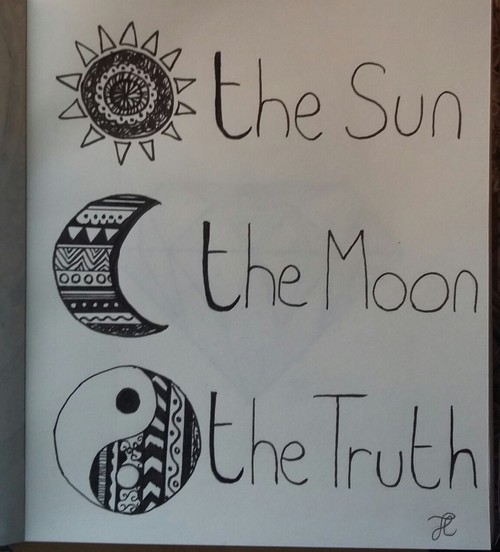 the Sun
the Moon
the Truth